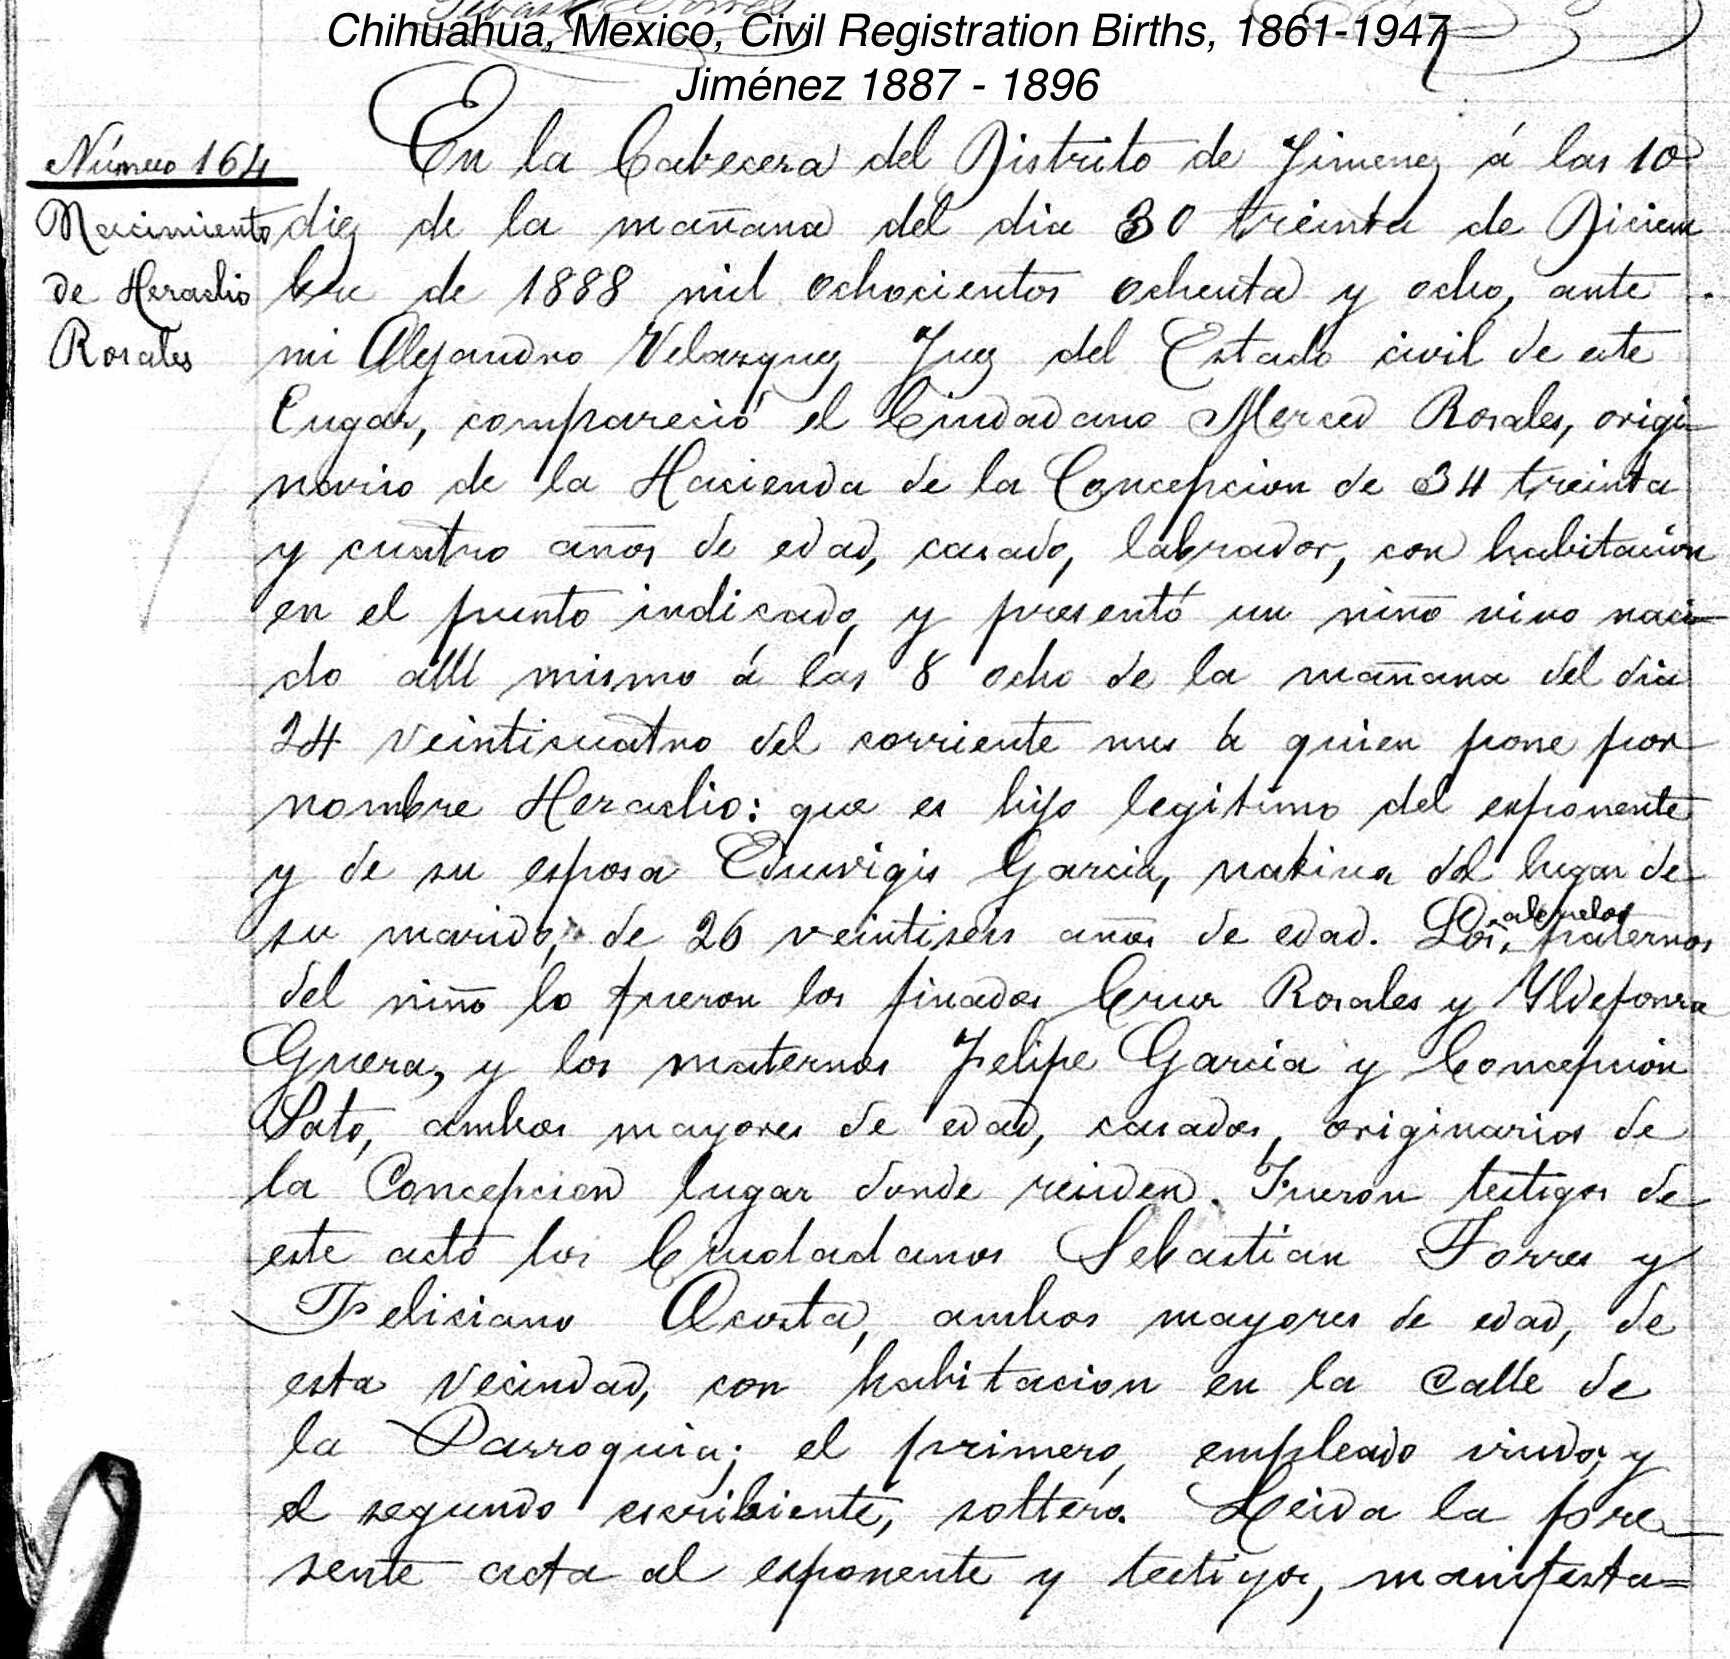 Chihuahua, Mexico, Civil Registration Births, 1861-1947
Jiménez 1887 - 1896
Número 164
Nacimiento
de Heraclio
Rosales
En la Cabesera del Distrito de Jimenez á las 10
diez de la mañana del dia 30 treinta de Diciem
bre de 1888 mil ochocientos ochenta y ocho, ante
mi Alejandro Velazquez Juez del Estado civil de este
Lugar, compareció el Ciudadano Merced Rosales, origi-
nario de la Hacienda de la Concepcion de 34 treinta
y cuatro años de edad, casado, labrador, con habitacion
en el punto indicado, y presentó un niño vivo naci-
do allí mismo á las 8 ocho de la mañana del dia
24 veinticuatro del corriente mes á quien pone por
nombre Heraclio: que es hijo legitimo del esponente
y de su esposa Eduvigis Garcia, nativa del lugar de
su marido, de 26 veintiseis años de edad. Los abuelos paternos
del niño lo fueron los finados Cruz Rosales y Yldefonsa
Guera, y los maternos Felipe Garcia y Concepcion
Soto, ambos mayores de edad, casados, originarios de
la Concepcion lugar donde residen. Fueron testigos de
este acto los Ciudadanos Sebastian Torres y
Feliciano Acosta, ambos mayores de edad, de
esta vecindad, con habitacion en la Calle de
la Parroquia; el primero, empleado viudo; y
el segundo escribiente, soltero. Leida la pre-
sente acta al esponente y testigos, manifesta=